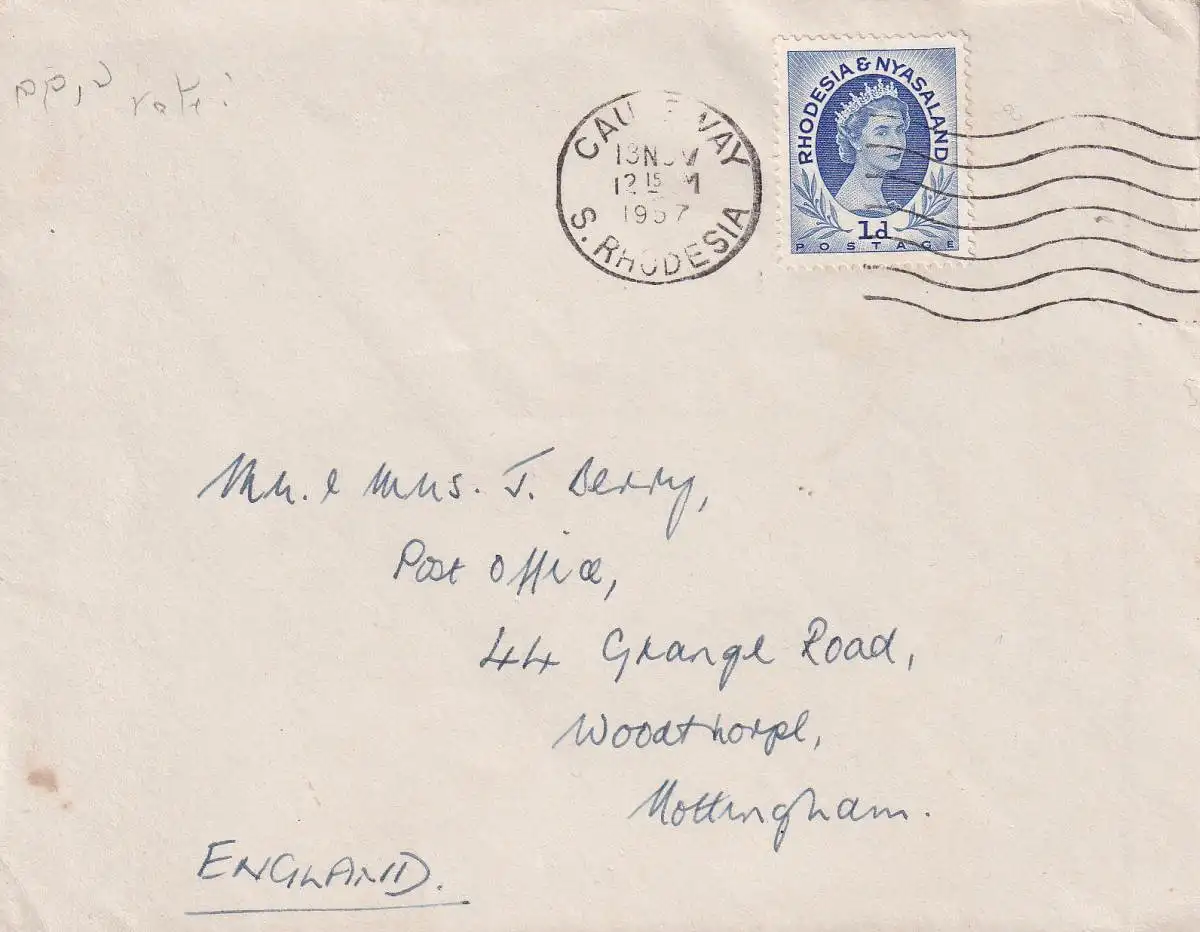 ppr rate:
RHODESIA & NYASALAND
1d
POSTAGE
CAU E WAY
13 NOV
12 15 M
1957
S. RHODESIA
Mr. & Mrs. J. Berry,
Post Office,
44 Grange Road,
Woodthorpe,
Nottingham.
ENGLAND.